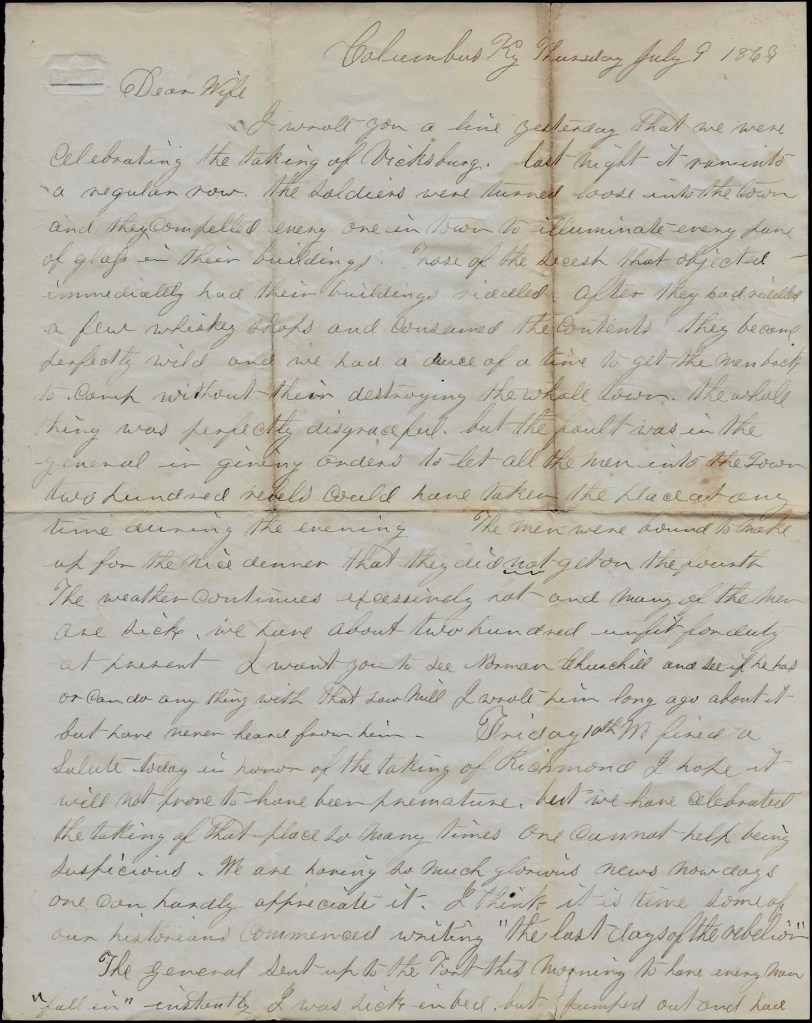 Columbus Ky Thursday July 9 1863
Dear Wife
I wrote you a line yesterday that we were
celebrating the taking of Vicksburg. last night it run into
a regular row. the soldiers were turned loose into the town
and they compelled every one in town to illuminate every pane
of glass in their buildings. Those of the secesh that objected
immediatly had their buildings riddled. after they had riddled
a few whiskey shops and consumed the contents they became
perfectly wild and we had a duce of a time to get the men back
to camp without their destroying the whole town. the whole
thing was perfectly disgraceful. but the fault was in the
general in giving orders to let all the men into the town
two hundred rebels could have taken the place at any
time during the evening The men were bound to make
up for the nice denner that they did not get on the fourth
The weather continues excessively hot and many of the men
are sick, we have about two hundred unfit for duty
at present I want you to see Norman Churchill and see if he has
or can do any thing with that saw mill I wrote him long ago about it
but have never heard from him - Friday 10th We fired a
Salute today in honor of the taking of Richmond I hope it
will not prove to have been premature. but we have celebrated
the taking of that place so many times one cannot help being
suspicious. We are having so much glorious news now days
one can hardly appreciate it. I think it is time some of
our historians commenced writing "the last days of the rebelion"
The general sent up to the Fort this morning to have every man
"fall in" instently I was sick in bed, but jumped out and had